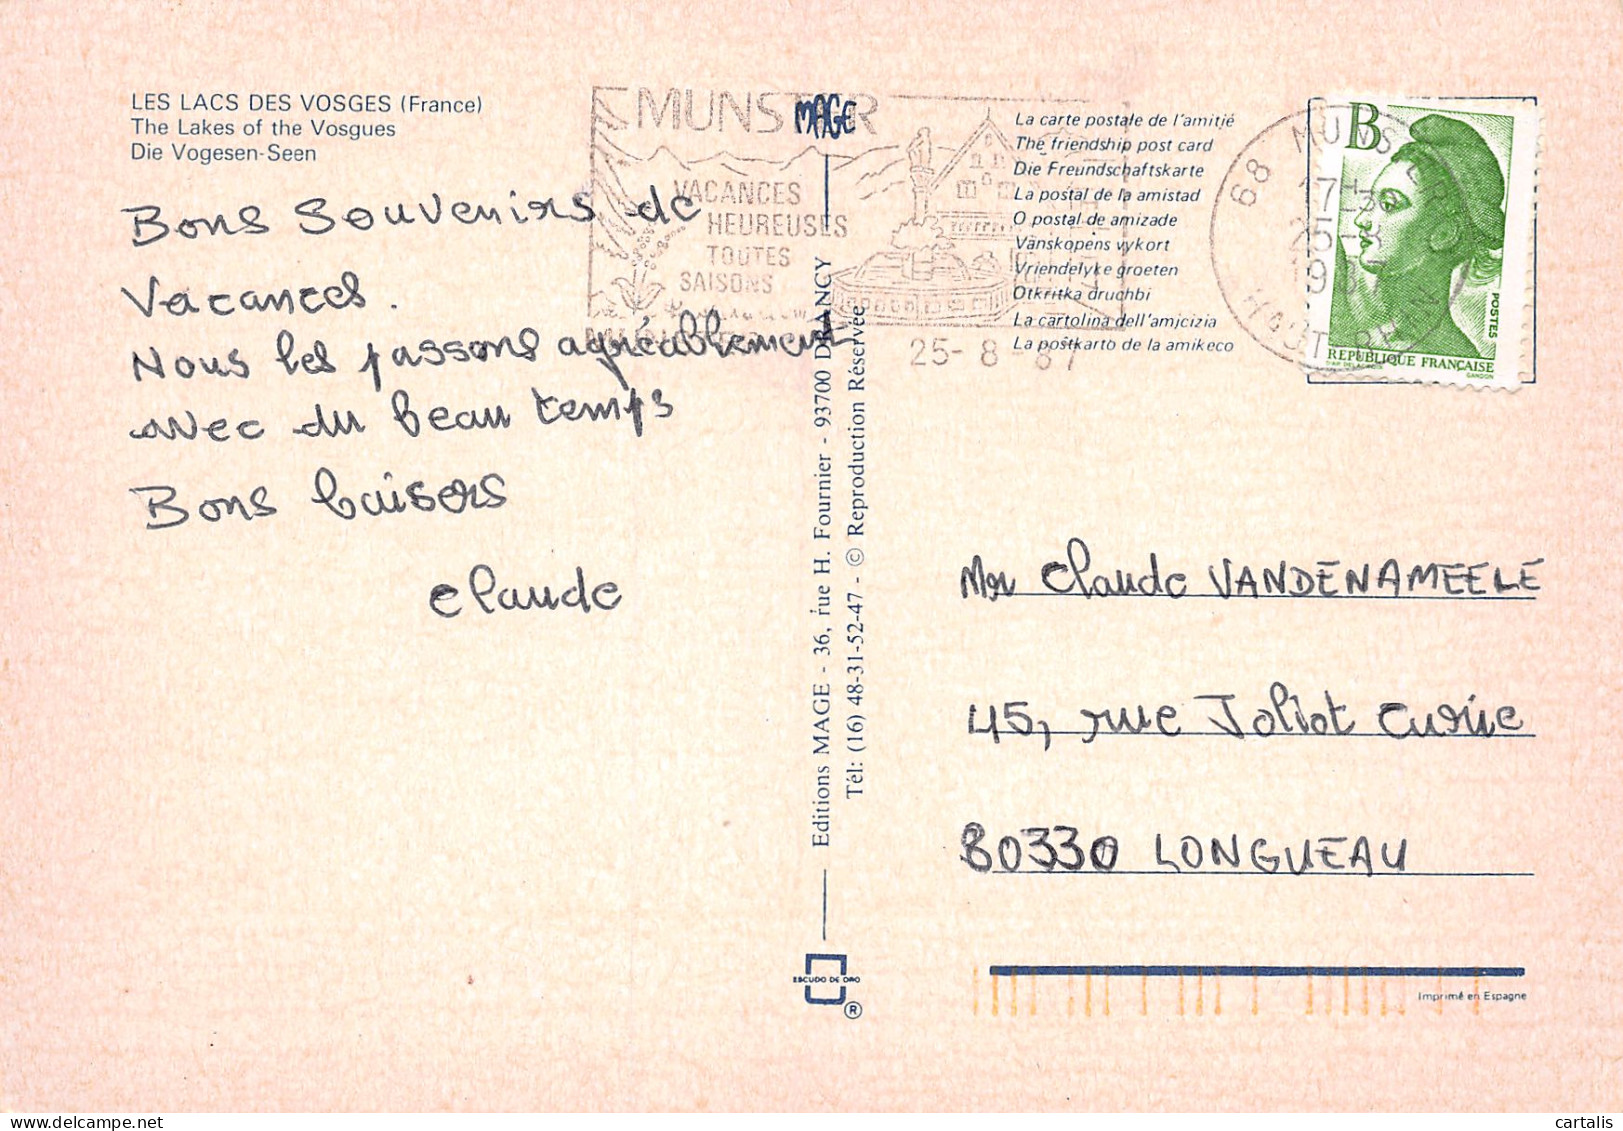 LES LACS DES VOSGES (France)
The Lakes of the Vosgues
Die Vogesen-Seen
Bons Souvenirs de
Vacances.
Nous les passons agréablement
avec du beau temps
Bons baisers
Claude
MUNSTER
VACANCES
HEUREUSES
TOUTES
SAISONS
25-8-87
MAGE
Editions MAGE - 36, rue H. Fournier - 93700 DRANCY
Tél: (16) 48-31-52-47 - © Reproduction Réservée
ESCUDO DE ORO
®
La carte postale de l'amitié
The friendship post card
Die Freundschaftskarte
La postal de la amistad
O postal de amizade
Vänskopens vykort
Vriendelyke groeten
Otkritka druchbi
La cartolina dell'amicizia
La postkarto de la amikeco
68 MUNSTER
25-8
1987
HAUT RHIN
B
POSTES
REPUBLIQUE FRANÇAISE
D'AP. DELACROIX GANDON
Mr Claude VANDENAMEELE
45, rue Joliot Curie
80330 LONGUEAU
Imprimé en Espagne
cartalis